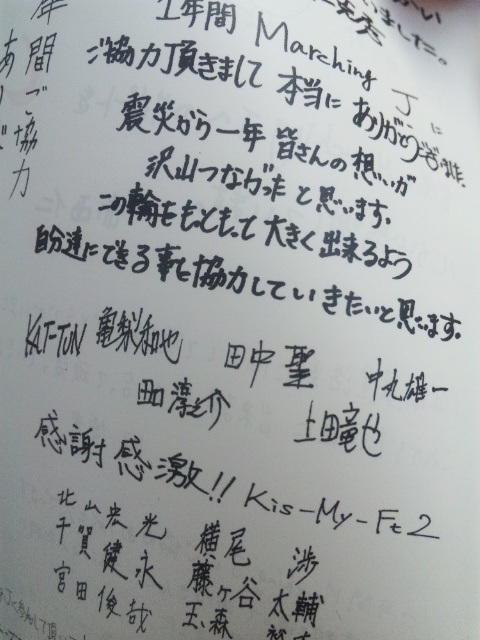 1年間 Marching J に
ご協力頂きまして 本当に ありがとう
震災から一年 皆さんの想いが
沢山つながったと思います。
この輪をもっともっと大きく出来るよう
自分達にできる事を協力していきたいと思います。
KAT-TUN 亀梨和也 田中 聖 中丸雄一
田口淳之介 上田竜也
感謝感激!! Kis-My-Ft2
北山宏光 横尾 渉
千賀健永 藤ヶ谷太輔
宮田俊哉 玉森
年間ご協力